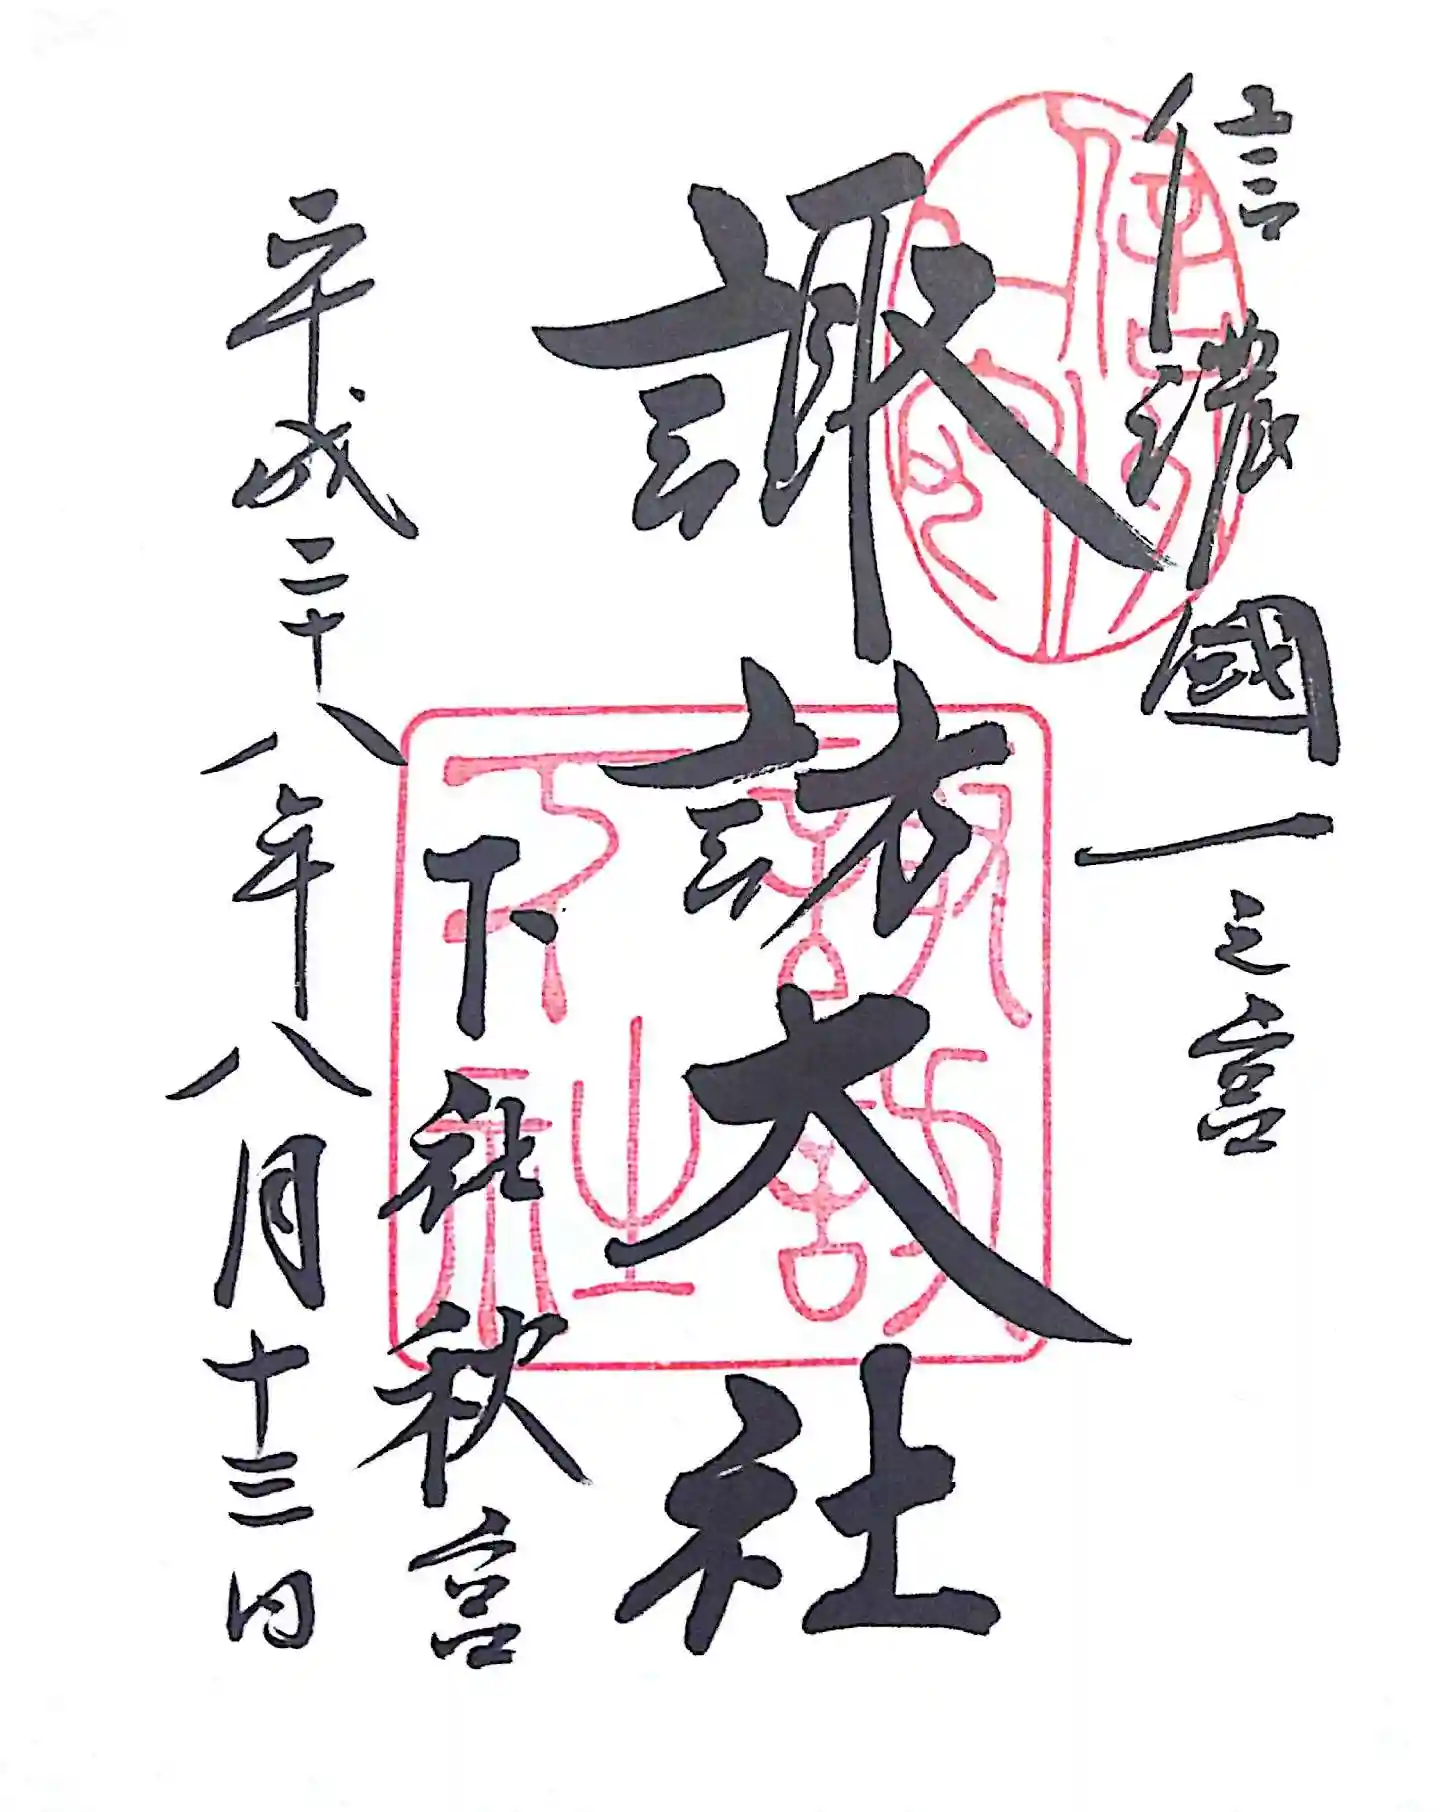 信濃國一之宮
諏訪大社
下社秋宮
平成二十八年八月十三日
諏訪
下社